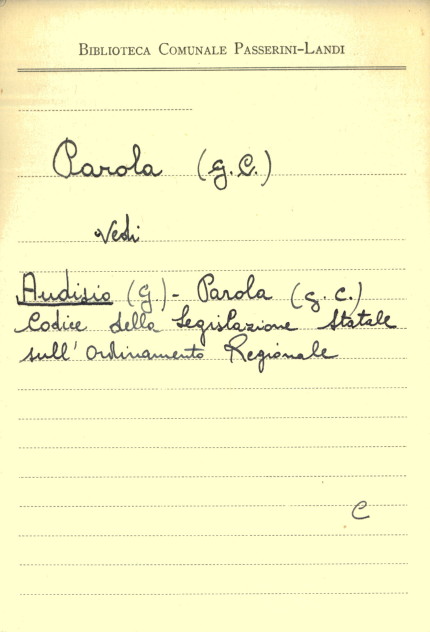 BIBLIOTECA COMUNALE PASSERINI-LANDI
Parola (G.C.)
Vedi
Audisio (G.) - Parola (G.C.)
Codice della Legislazione Statale
sull'Ordinamento Regionale
C